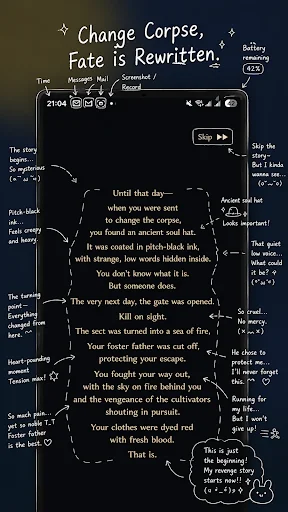 Change Corpse,
Fate is Rewritten.
Battery
remaining
42%
Time
Messages
Mail
Screenshot /
Record
21:04
42
Skip
Skip the
story–
But I kinda
wanna see...
The story
begins...
So mysterious
Until that day—
when you were sent
to change the corpse,
you found an ancient soul hat.
Ancient soul hat
Looks important!
Pitch-black
ink...
Feels creepy
and heavy.
It was coated in pitch-black ink,
with strange, low words hidden inside.
You don't know what it is.
But someone does.
That quiet
low voice...
What could
it be?
The turning
point—
Everything
changed from
here. ^^
The very next day, the gate was opened.
Kill on sight.
The sect was turned into a sea of fire,
So cruel...
No mercy.
(×﹏×)
Heart-pounding
moment
Tension max!
Your foster father was cut off,
protecting your escape.
He chose to
protect me...
I'll never forget
this. ^^ ♡
You fought your way out,
with the sky on fire behind you
and the vengeance of the cultivators
shouting in pursuit.
Running for
my life...
But I won't
give up!
So much pain...
yet so noble T_T
Foster father
is the best. ♡
Your clothes were dyed red
with fresh blood.
That is.
This is just
the beginning!
My revenge story
starts now!!